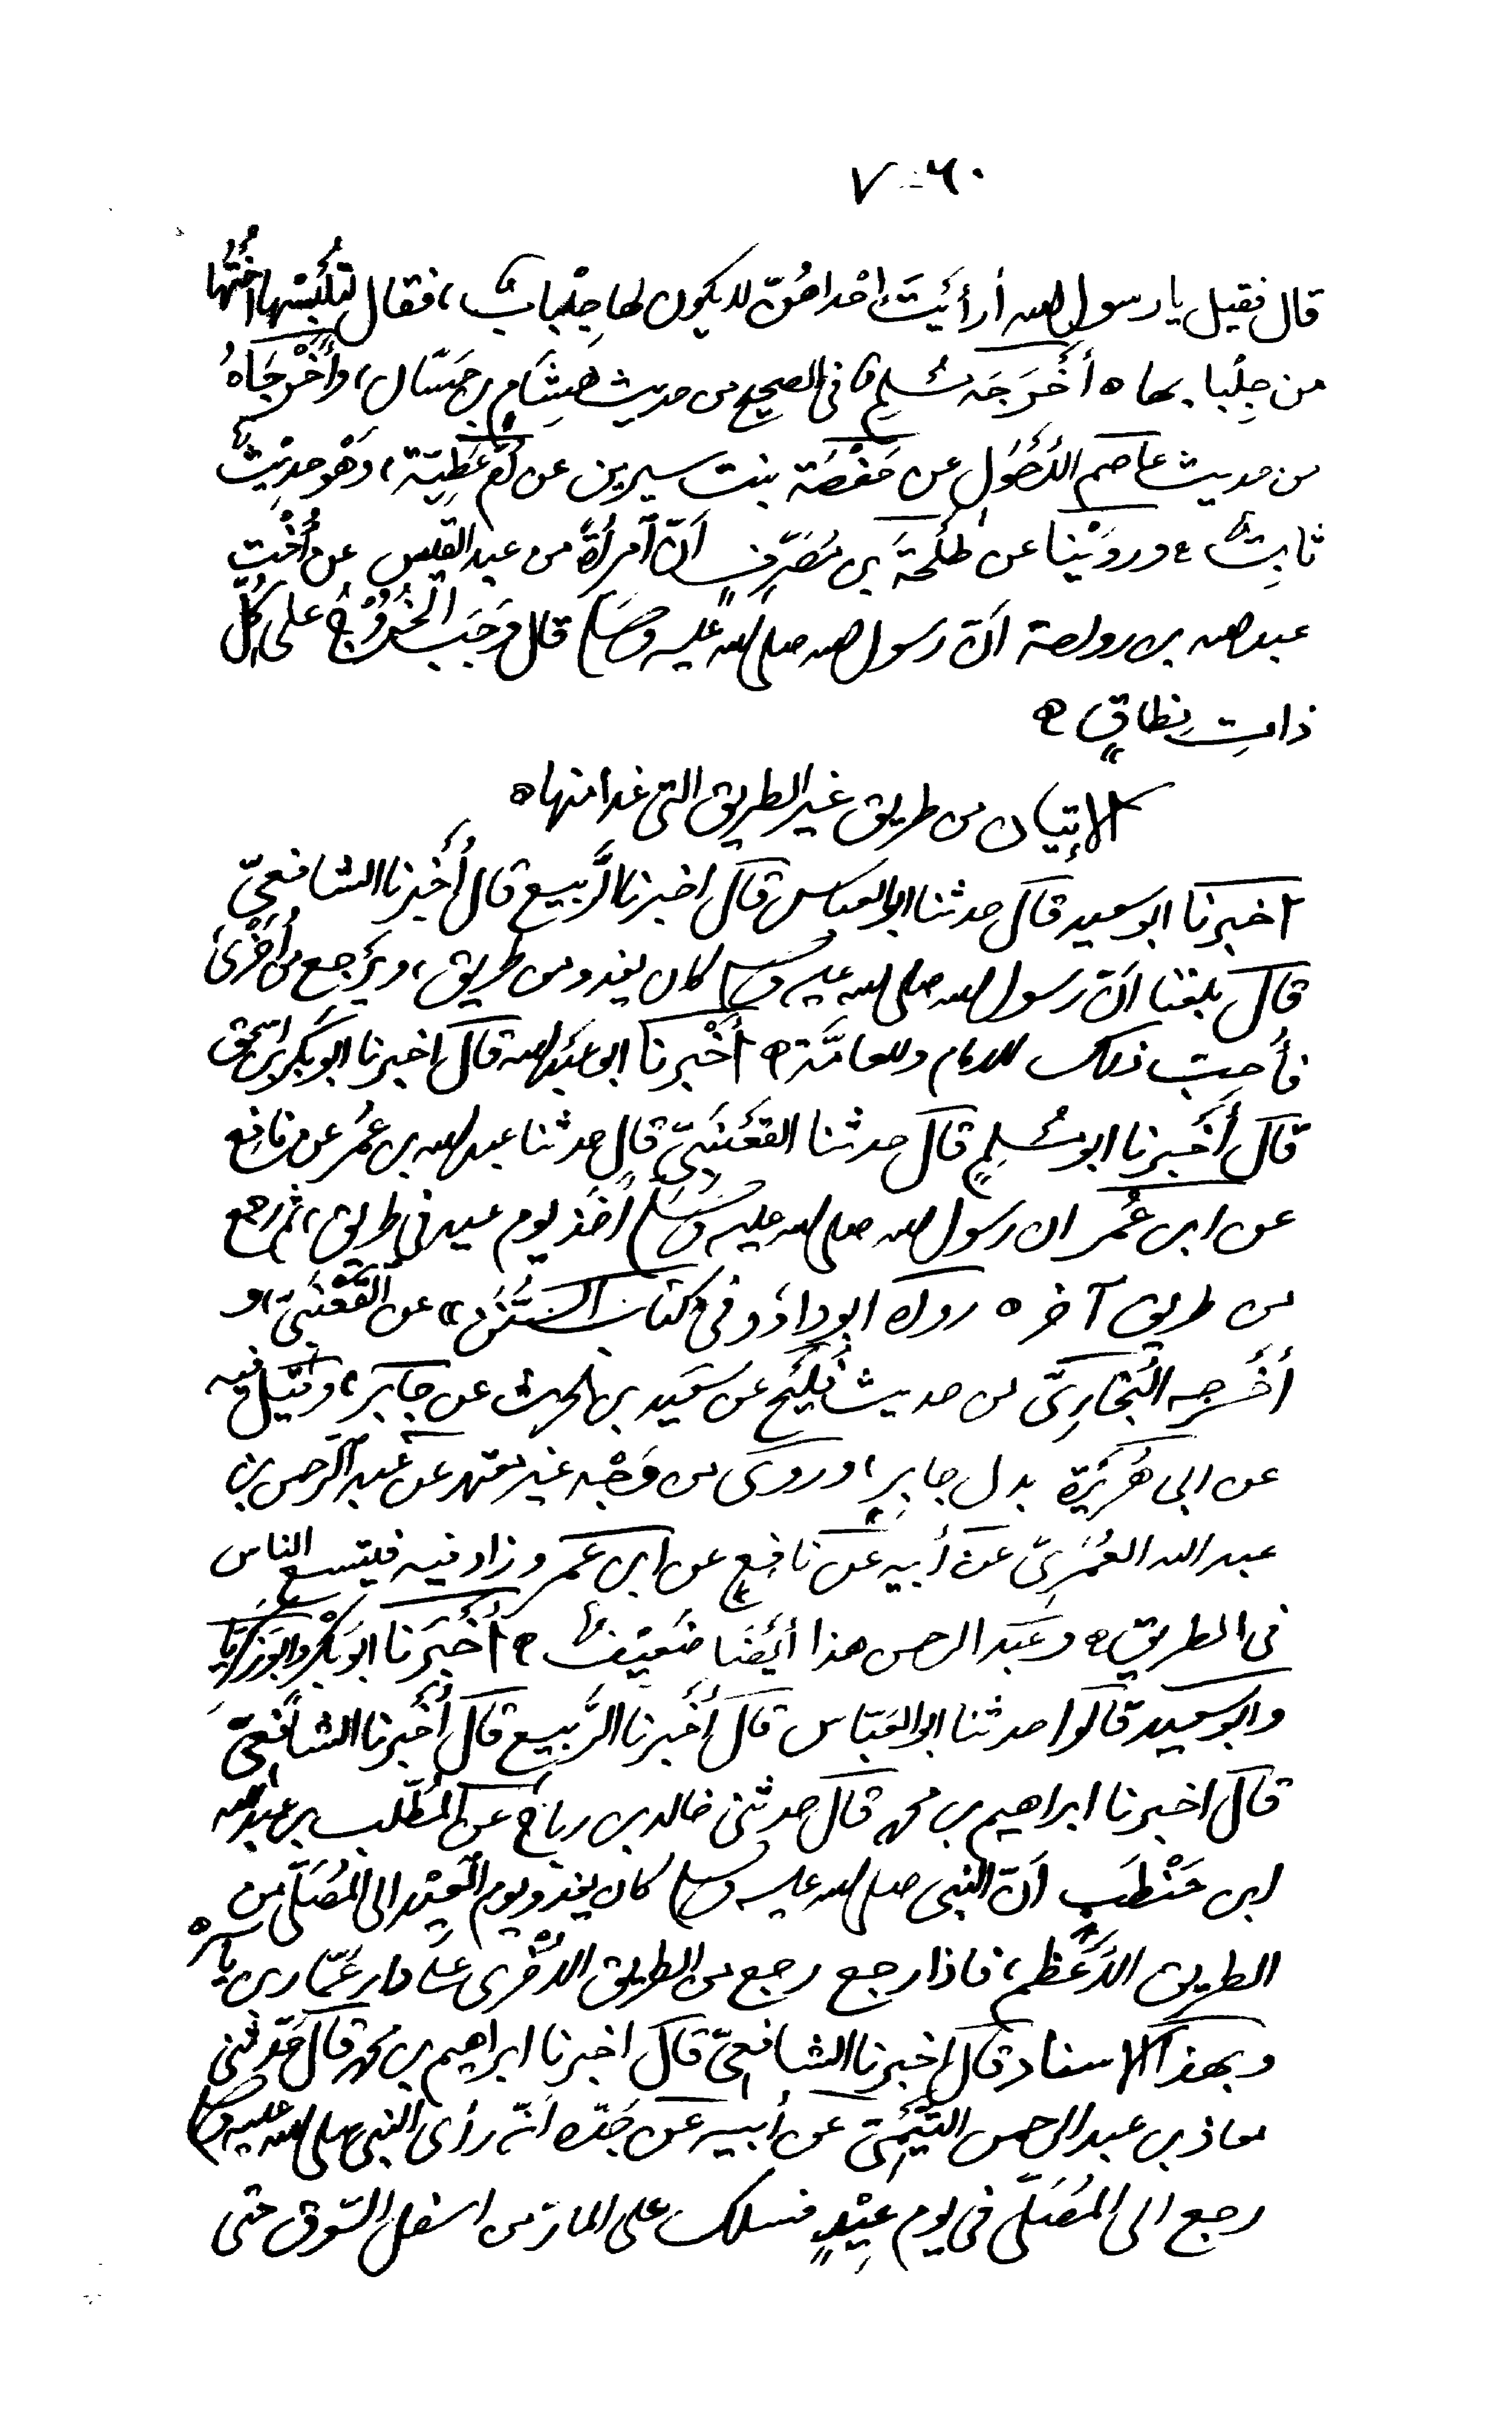 ٧-٦٠
قال فقيل يا رسول الله أرأيت احداهن لا يكون لها جلباب، فقال لتلبسها اختها
من جلبابها ه أخرجه مسلم في الصحيح من حديث هشام بن حسان، وأخرجاه
من حديث عاصم الأحول عن حفصة بنت سيرين عن أم عطية، وهو حديث
ثابت ه وروينا عن طلحة بن مصرف أن امرأة من عبد القيس عن أخت
عبد الله بن رواحة أن رسول الله صلى الله عليه وسلم قال وجب الخروج على كل
ذات نطاق ه
الإتيان من طريق غير الطريق التي غدا منها ه
اخبرنا ابو سعيد قال حدثنا ابو العباس قال اخبرنا الربيع قال أخبرنا الشافعي
قال بلغنا أن رسول الله صلى الله عليه وسلم كان يغدو من طريق، ويرجع من أخرى
فأحب ذلك للإمام وللعامة ه أخبرنا ابو عبد الله قال اخبرنا ابو بكر بن اسحق
قال أخبرنا ابو مسلم قال حدثنا القعنبي قال حدثنا عبد الله بن عمر عن نافع
عن ابن عمر ان رسول الله صلى الله عليه وسلم أخذ يوم عيد في طريق، ثم رجع
من طريق آخر ه رواه ابو داود في كتاب السنن، عن القعنبي، و
أخرجه البخاري من حديث فليح عن سعيد بن الحرث عن جابر، وقيل فيه
عن ابي هريرة بدل جابر، وروى من وجه غير معتمد عن عبد الرحمن بن
عبد الله العمري عن أبيه عن نافع عن ابن عمر وزاد فيه فيتسع الناس
في الطريق ه وعبد الرحمن هذا أيضا ضعيف ه أخبرنا ابو بكر وابو زكريا
وابو سعيد قالوا حدثنا ابو العباس قال أخبرنا الربيع قال أخبرنا الشافعي
قال اخبرنا ابراهيم بن محمد قال حدثني خالد بن رباح عن المطلب بن عبد الله
ابن حنطب أن النبي صلى الله عليه وسلم كان يغدو يوم العيد الى المصلى من
الطريق الأعظم، فاذا رجع رجع من الطريق الأخرى على دار عمار بن ياسر ه
وبهذا الاسناد قال اخبرنا الشافعي قال اخبرنا ابراهيم بن محمد قال حدثني
معاذ بن عبد الرحمن التيمي عن أبيه عن جده أنه رأى النبي صلى الله عليه وسلم
رجع الى المصلى في يوم عيد فسلك على التمارين من اسفل السوق حتى